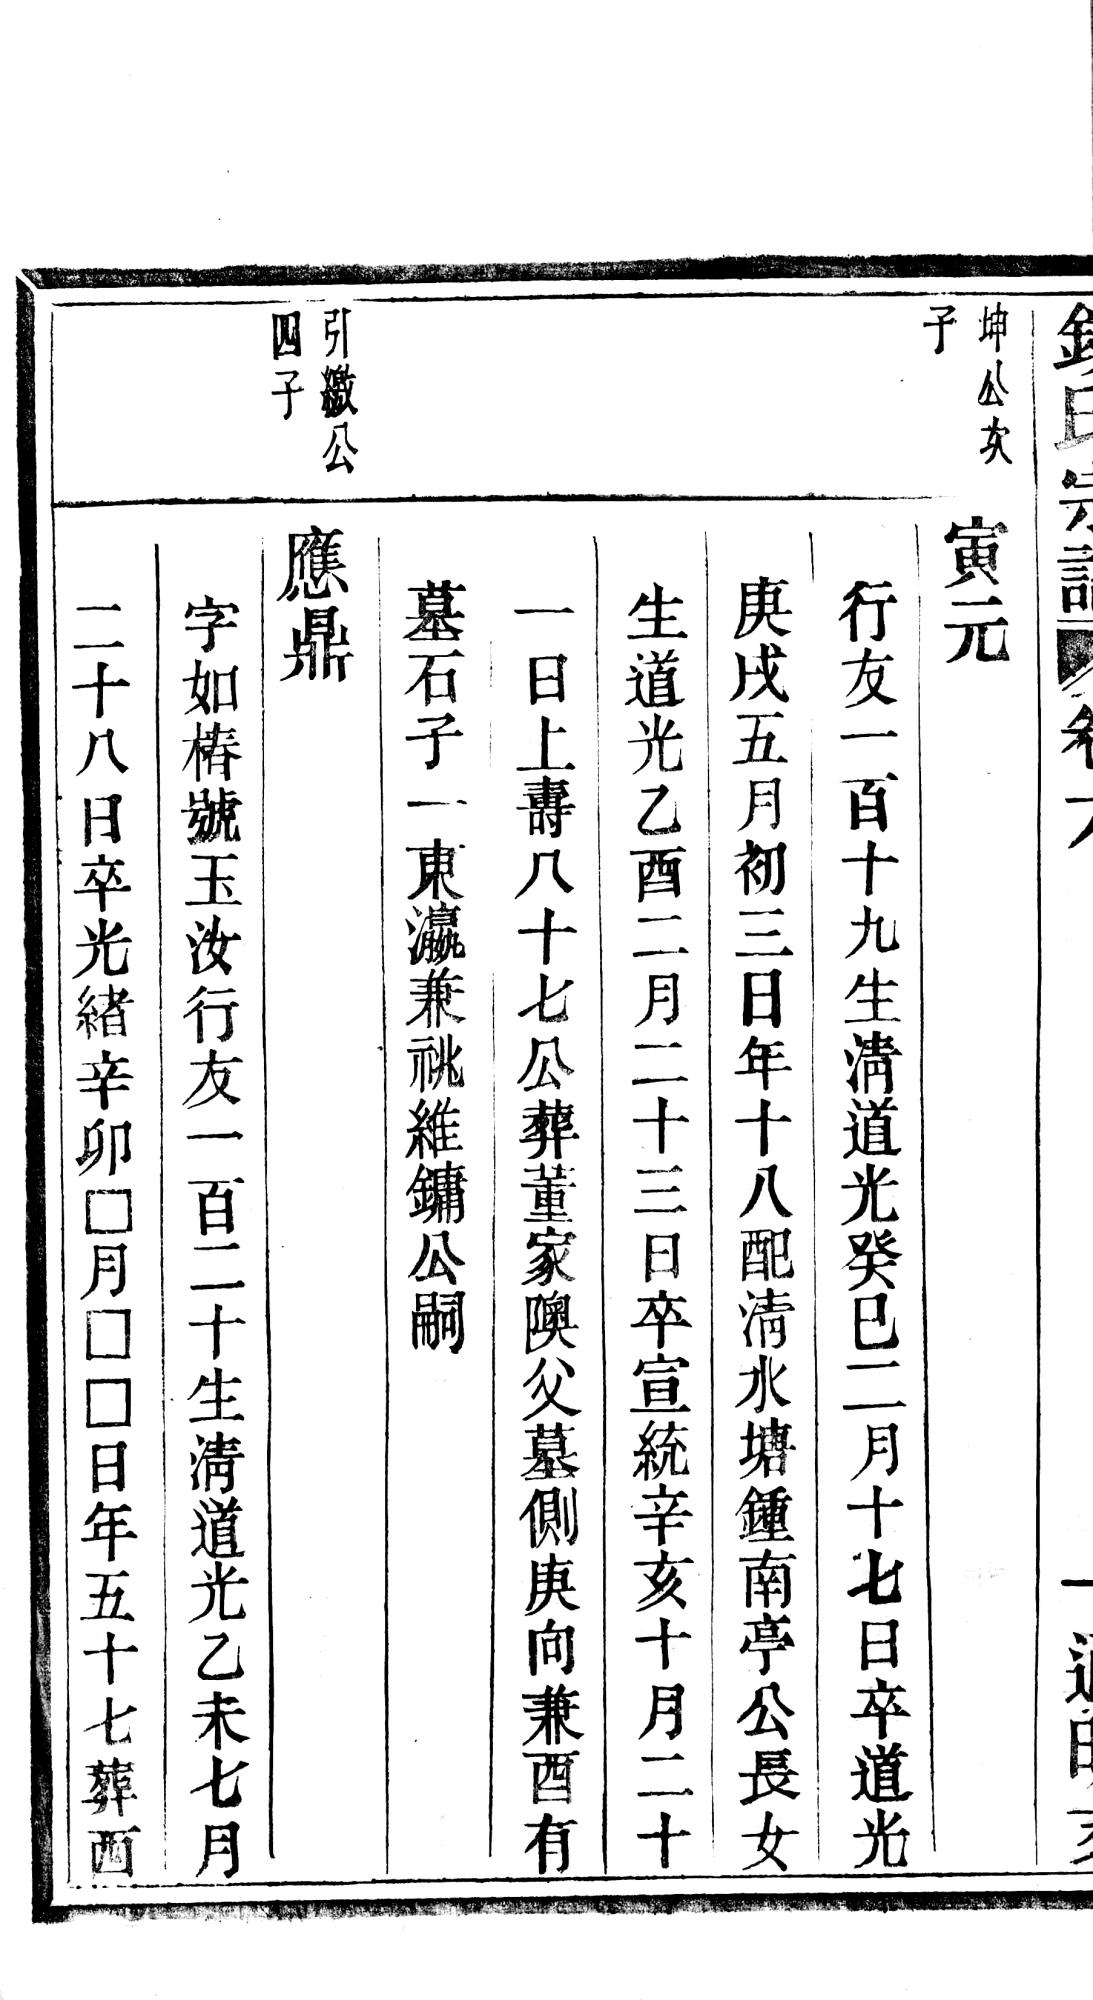 氏宗譜 卷六
坤公次
子
寅元
行友一百十九生淸道光癸巳二月十七日卒道光
庚戌五月初三日年十八配淸水塘鍾南亭公長女
生道光乙酉二月二十三日卒宣統辛亥十月二十
一日上壽八十七公葬董家隩父墓側庚向兼酉有
墓石子一東瀛兼祧維鏞公嗣
引繳公
四子
應鼎
字如椿號玉汝行友一百二十生淸道光乙未七月
二十八日卒光緒辛卯□月□□日年五十七葬西